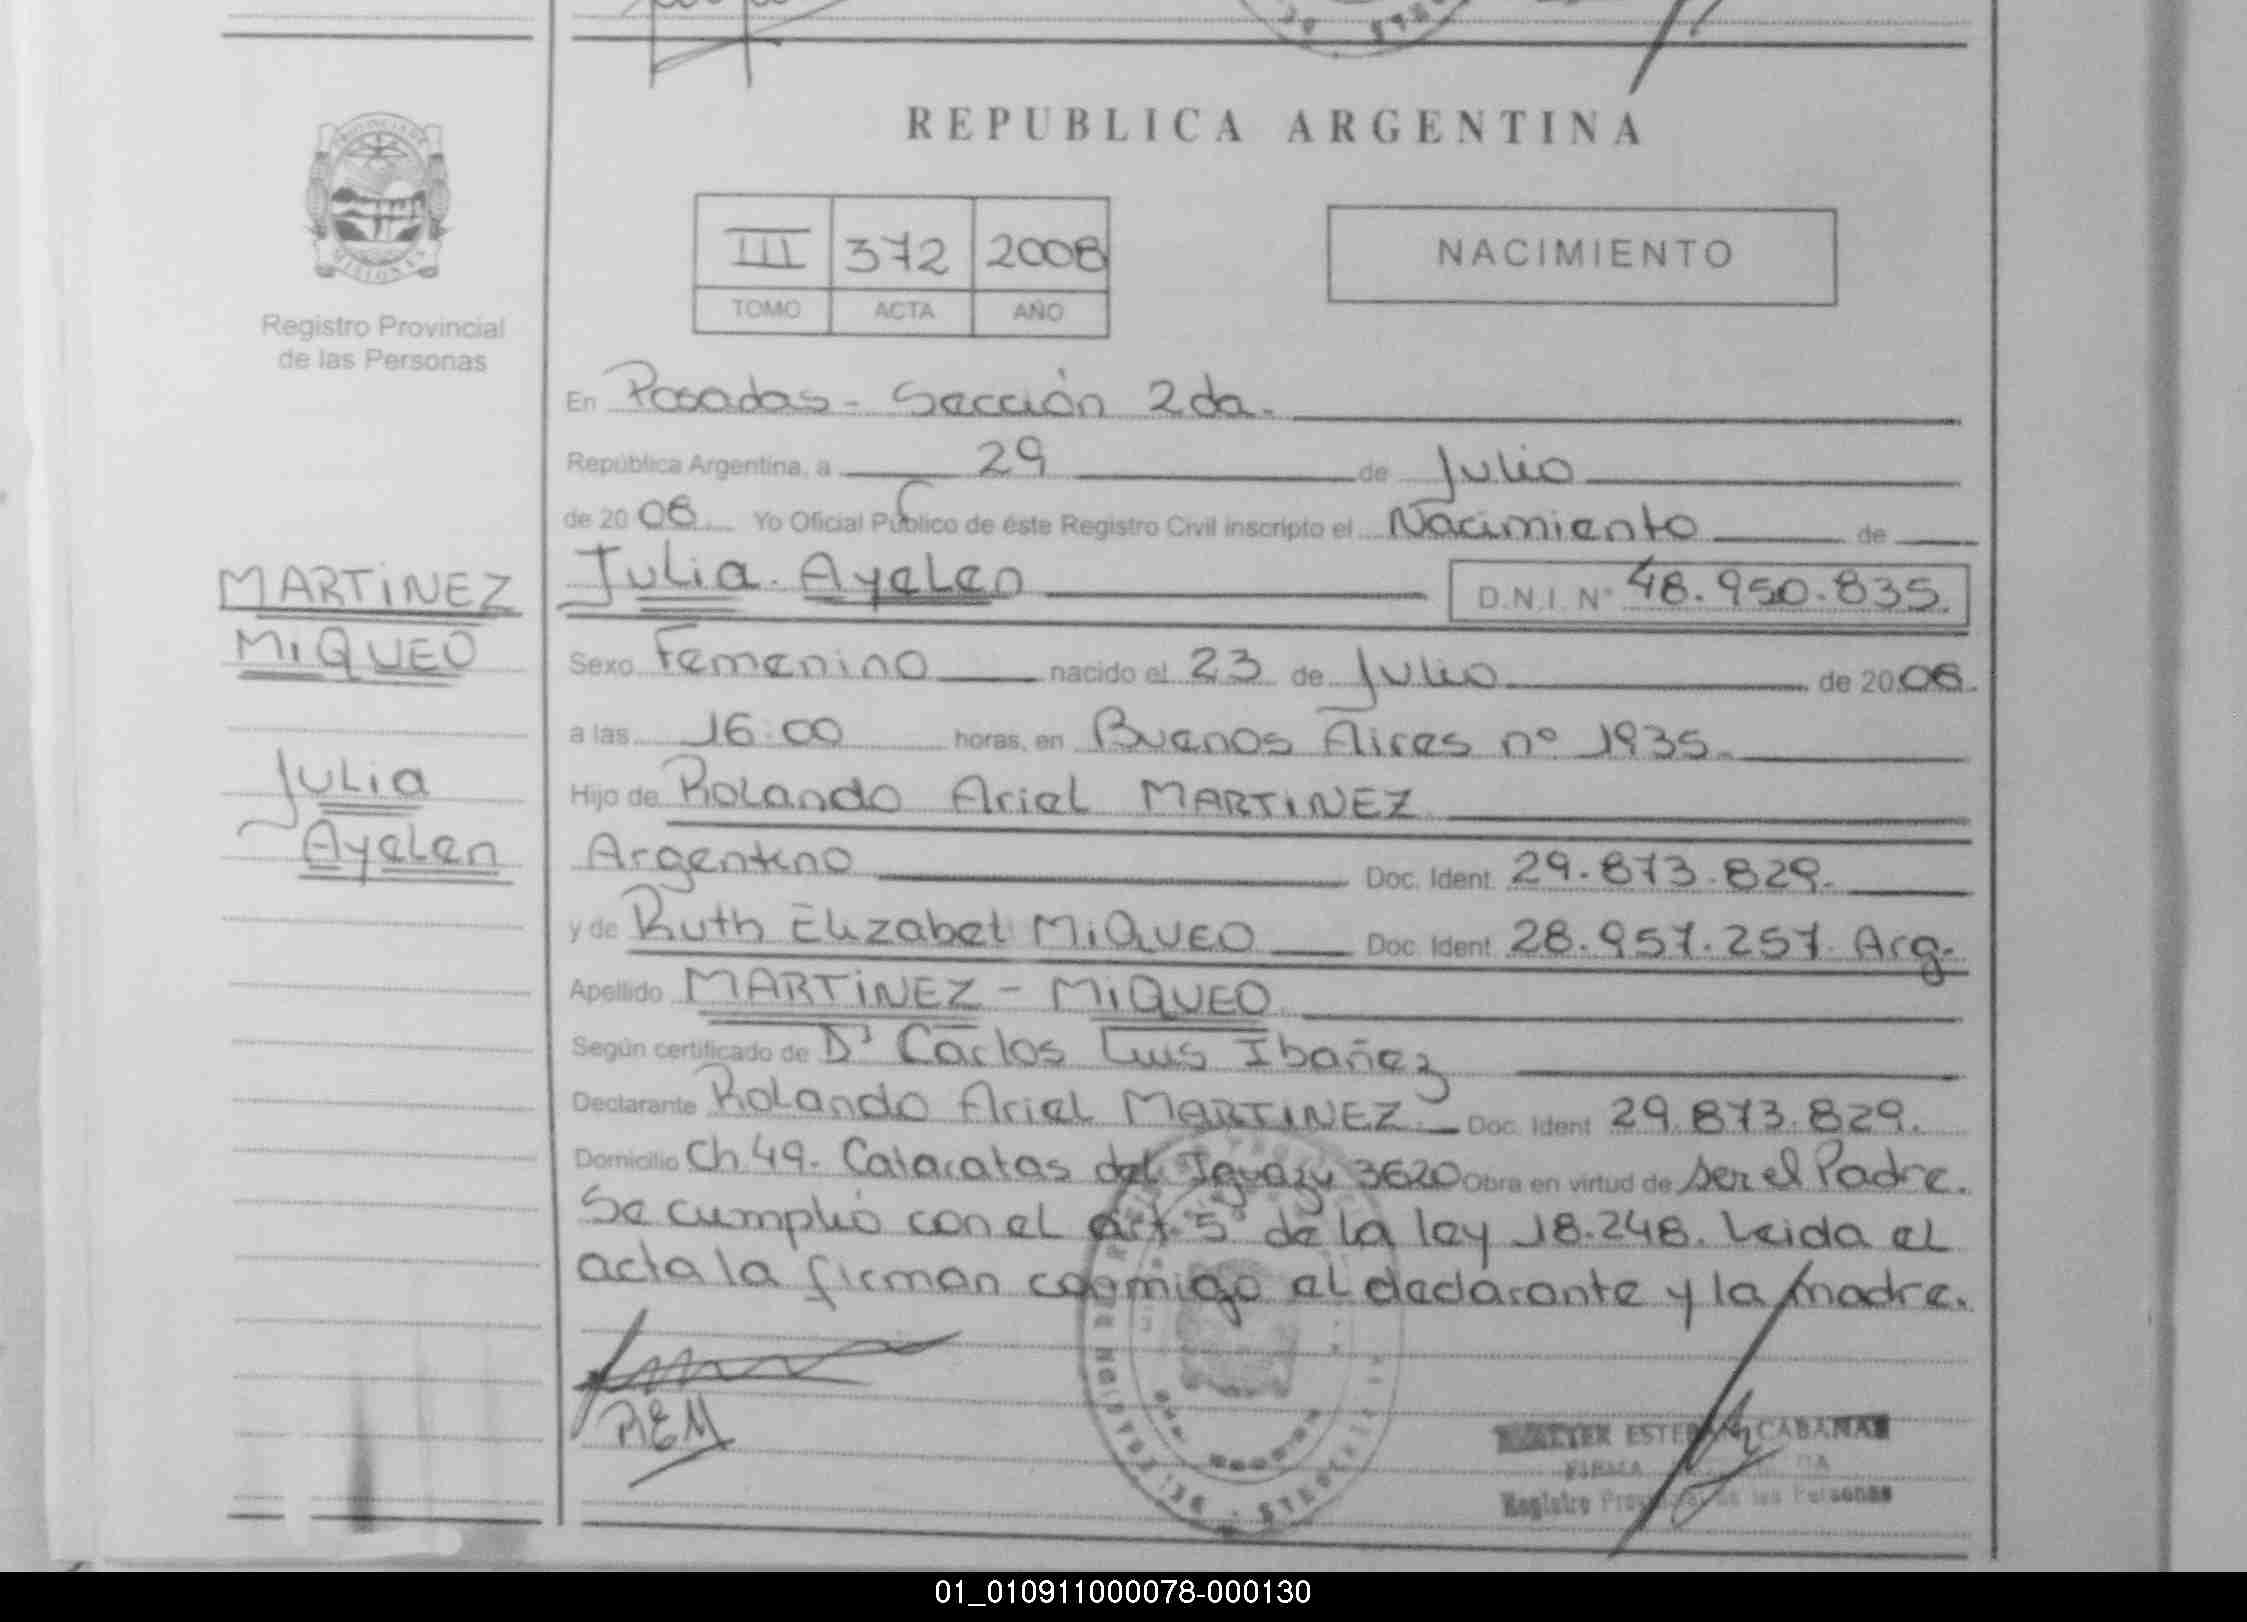 REPUBLICA ARGENTINA
PROVINCIA DE
MISIONES
Registro Provincial
de las Personas
III 372 2008
TOMO ACTA AÑO
NACIMIENTO
En Posadas - Sección 2da.
República Argentina, a 29 de Julio
de 20 08 Yo Oficial Público de éste Registro Civil inscripto el Nacimiento de
MARTINEZ
MIQUEO
Julia
Ayelen
Julia Ayelen D.N.I. Nº 48.950.835.
Sexo Femenino nacido el 23 de Julio de 20 08.
a las 16:00 horas, en Buenos Aires nº 1935.
Hijo de Rolando Ariel MARTINEZ
Argentino Doc. Ident. 29.873.829.
y de Ruth Elizabet MIQUEO Doc. Ident. 28.957.257. Arg.
Apellido MARTINEZ - MIQUEO
Según certificado de Dr Carlos Luis Ibañez
Declarante Rolando Ariel MARTINEZ. Doc. Ident 29.873.829.
Domicilio Ch 49. Cataratas del Iguazu 3620 Obra en virtud de ser el Padre.
Se cumplió con el art. 5º de la ley 18.248. Leida el
acta la firman conmigo el declarante y la madre.
REM
WALTER ESTEBAN CABAÑAS
FIRMA
Registro Provincial de las Personas
01_010911000078-000130